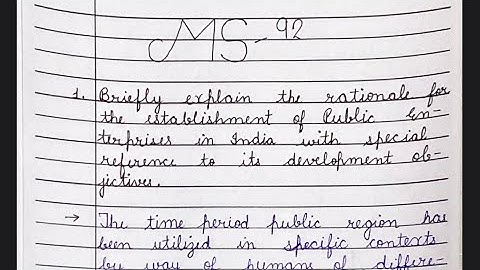 MS-92
1. Briefly explain the rationale for
the establishment of Public En-
terprises in India with special
reference to its development ob-
jictives.
→ The time period public region has
been utilized in specific contexts
by way of humans of differe-